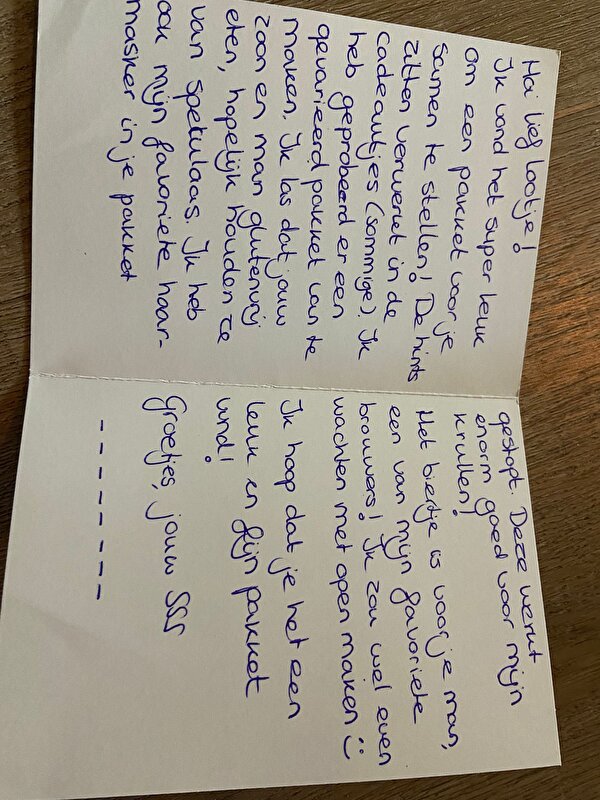 Hai lief lootje!
Ik vond het super leuk
om een pakket voor je
samen te stellen! De hints
zitten verwerkt in de
cadeautjes (sommige). Ik
heb geprobeerd er een
gevarieerd pakket van te
maken. Ik las dat jouw
zoon en man glutenvrij
eten, hopelijk houden ze
van spekulaas. Ik heb
ook mijn favoriete haar-
masker in je pakket
gestopt. Deze werkt
enorm goed voor mijn
krullen!
Het biertje is voor je man,
een van mijn favoriete
brouwers! Ik zou wel even
wachten met open maken :)
Ik hoop dat je het een
leuk en fijn pakket
vind!
Groetjes, jouw SSS
- - - - - - - -